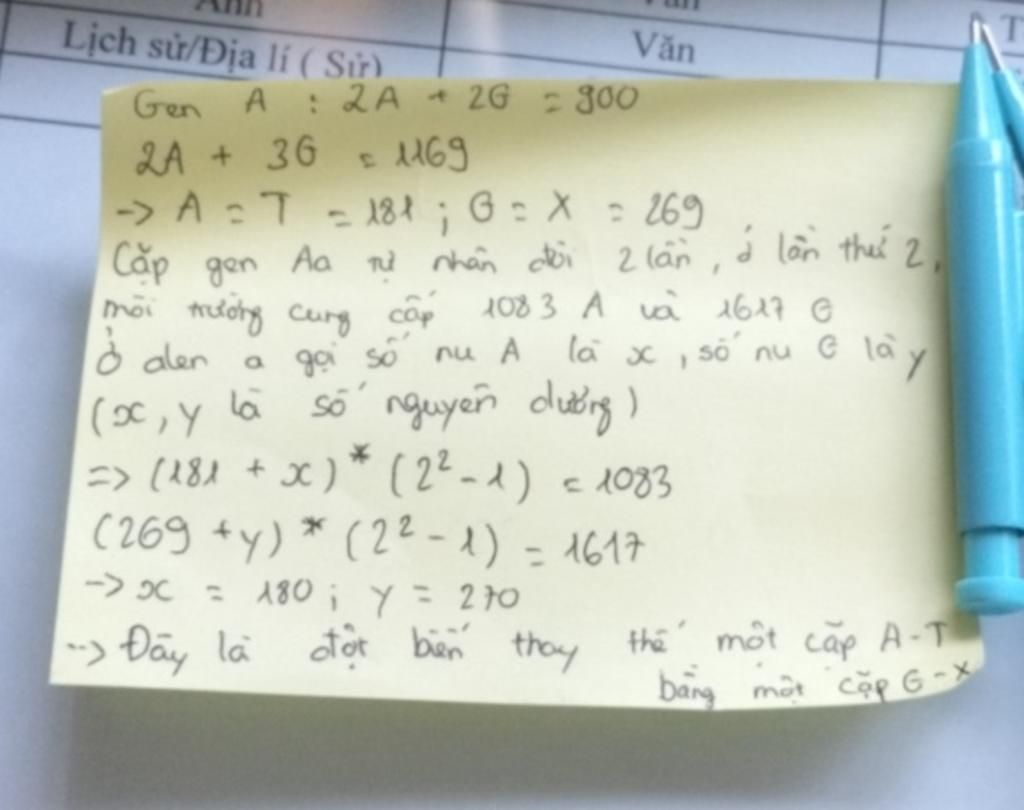 Anh
Văn
Lịch sử/Địa lí ( Sử)
Văn
T
Gen A : 2A + 2G = 900
2A + 3G = 1169
-> A = T = 181 ; G = X = 269
Cặp gen Aa tự nhân đôi 2 lần, ở lần thứ 2,
môi trường cung cấp 1083 A và 1617 G
Ở alen a gọi số nu A là x, số nu G là y
(x, y là số nguyên dương)
=> (181 + x) * (2² - 1) = 1083
(269 + y) * (2² - 1) = 1617
-> x = 180 ; y = 270
--> Đây là đột biến thay thế một cặp A-T
bằng một cặp G-X